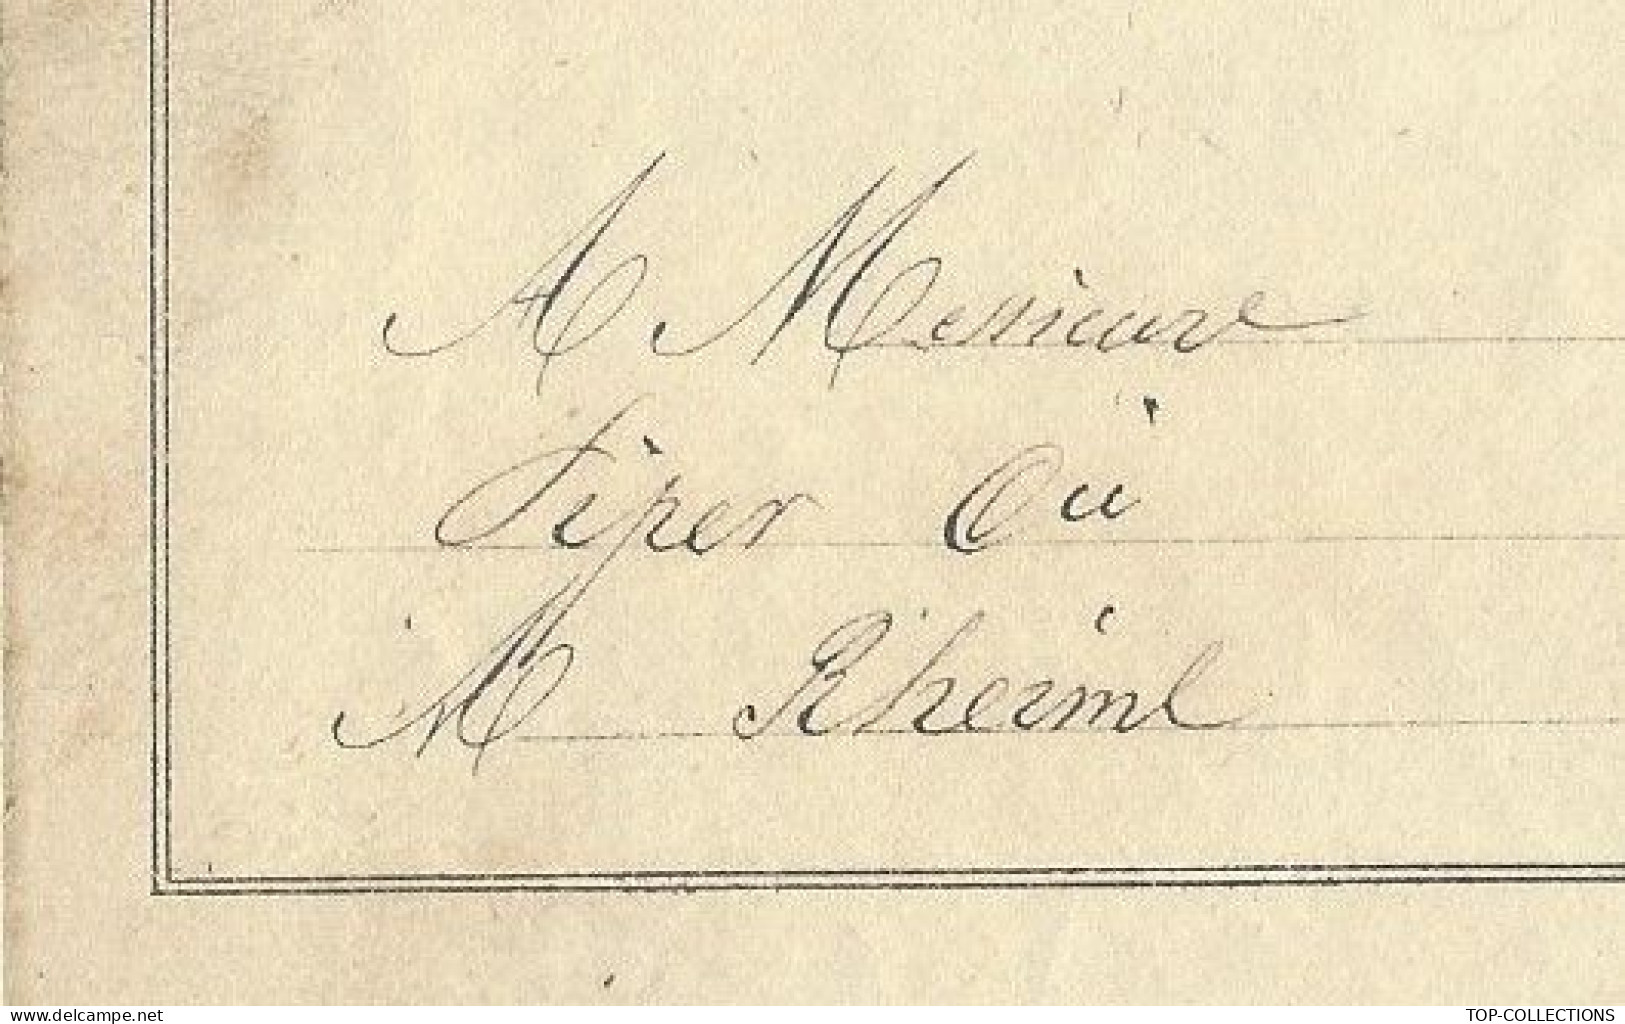 A Messieurs
Piper Cie
M Rheims
www.delcampe.net
TOP-COLLECTIONS